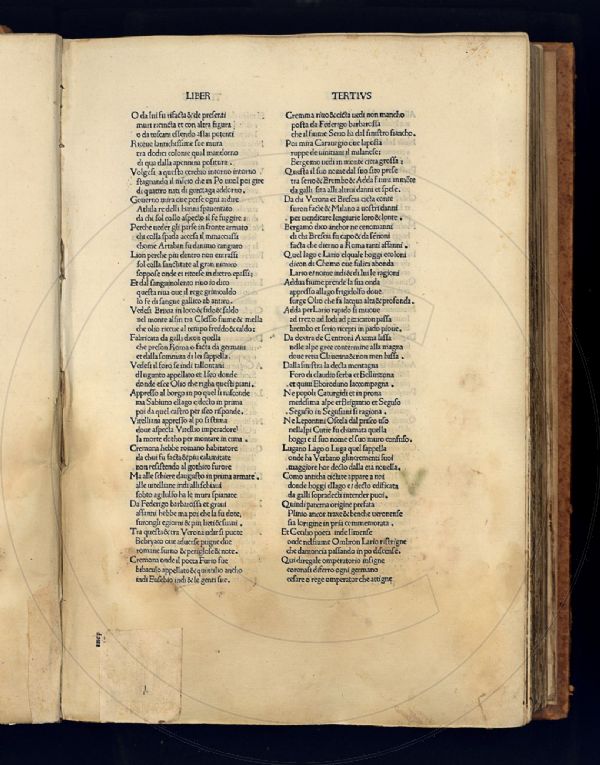 LIBER TERTIVS
O da lui fu rifacta & de presenti
muri ricincta et con altra figura
o da toscani essendo assai potenti
Ritéue lantichissime sue mura
tra dodici colonie qual man torno
di qua dalla apennina positura.
Volgesi a questo cerchio intorno intorno
stagnando il mincio che in Po uuel poi gire
di quattro nati di guittaga addorno.
Gouerno mira oue perse ogni ardire
Athila re delli hunni spauentato
da chi sol collo aspecto il fe fuggire
Perche uedergli parse in fronte armato
chi colla spada accesa il minacciassi
chome Artaban fu diuino tanguato
Lion perche piu dentro non entrassi
sol colla sanctitate al gran nimico
soppose onde ei ritorse in dietro epassi;
Et dal sanguinolento niuo io dico
questa riua que il rege grimoaldo
lo fe di sangue gallico ab antiro.
Vedesi Brixia in loco & fido & saldo
nel monte alsin tra Clessio fiume & mella
che olio riceue al tempo freddo & caldo;
Fabricata da galli dann quella
che preson Roma o facta da germani
et dalla semnuta di lei sappella.
Vedesi il foro se indi tallontani
ellaganto appellato et Iseo donde
donde esce Olio che righa questi piani.
Appresso al borgo in po quel si nasconde
ma Sabiuno ellago e decto in prima
poi da quel castro per iseo risponde.
Vitelliana appresso al po si stima
doue aspecta Vitellio imperadore
la morte dotho per montare in cima.
Cremona hebbe romano habitatore
da chui fu facta & piu calamitate
non resistendo al gothico furore
Ma alle schiere daugusto in prima armate.
alle uitelliane indi alli schiaui
sobto agilulfo ha le mura spianate
Da Federigo barbarossa et graui
affanni hebbe ma poi che la fu dote,
furongli egiorni & piu lieti & suaui.
Tra questa & tra Verona ueder si puote
Bebriaco que aduerse pugne due
romane furno & perigliose & note.
Cremona onde il poeta Furio fue
bibaculo appellato & quintilio ancho
indi Eusebio indi & le genti sue.
Cremma riuo & cicta uedi non mancho
posta da Federigo barbarossa
che il fiume Serio ha dal sinistro fiancho.
Poi mira Carauagio oue la posta
ruppe de uinitiani il milanese;
Bergomo uedi in monte cicta grossa;
Questa il suo nome dal suo sito prese
tra serio & Brembo & Adda fiumi inmacte
da galli sita alli altrui danni et spese.
Da chi Verona et Brescia cicta conte
furon facte & Milano a uostri danni
per uendicare lengiurie loro & lonte.
Bergamo dico anchor ne cenomanni
di chi Brescia fu capo & da sénoni
facta che dierno a Roma tanti affanni.
Quel lago e Lario elquale hoggi eroloni
dicon di Chomo oue fulica abonda
Lario et nome indi & di lui le ragioni
Addua fiume precide la sua onda
appresso allago frigidolfo doue
surge Olio che fa lacqua alta & profonda.
Adda per Lario rapido si muoue
ad trezo ad lodi ad piziccaton passa
brembo et serio ricepi in pado pioue.
Da dextra de Centroni Axama lassa
nelle alpe grece contermine alla magna
doue retta Clauenna & non men bassa.
Dalla sinistra la decta montagna
Foro di claudio serba et Bellinzona
et quiui Eboreduno laccompagna.
Ne popoli Caturgidi et in prona
medesima alpe et Brigantio et Seguso
Segusio in Segusiani si ragiona.
Ne Lepontini Oscela dal prisco uso
nellalpi Cutie fu chiamata quella
hoggi e il suo nome el suo muro confuso.
Lugano Lago o Luga quel sappella
onde ha Verbano glincrementi suoi
maggiore hor decto dalla eta nouella.
Como anticha cictate appare a noi
donde hoggi ellago e decto edificata
da galli sopradecti intender puoi.
Quindi paterna origine prefata
Plinio ancor traxe & benche ueronense
sia lorigine in pria commemorata.
Et Cecilio poeta inde limense
onde nel fiume Ombron Lario ristrigne
che da moncia passando in po discense.
Qui di regale omperatorio insigne
coronasi di ferro ogni germano
cesare o rege omperator che attigne